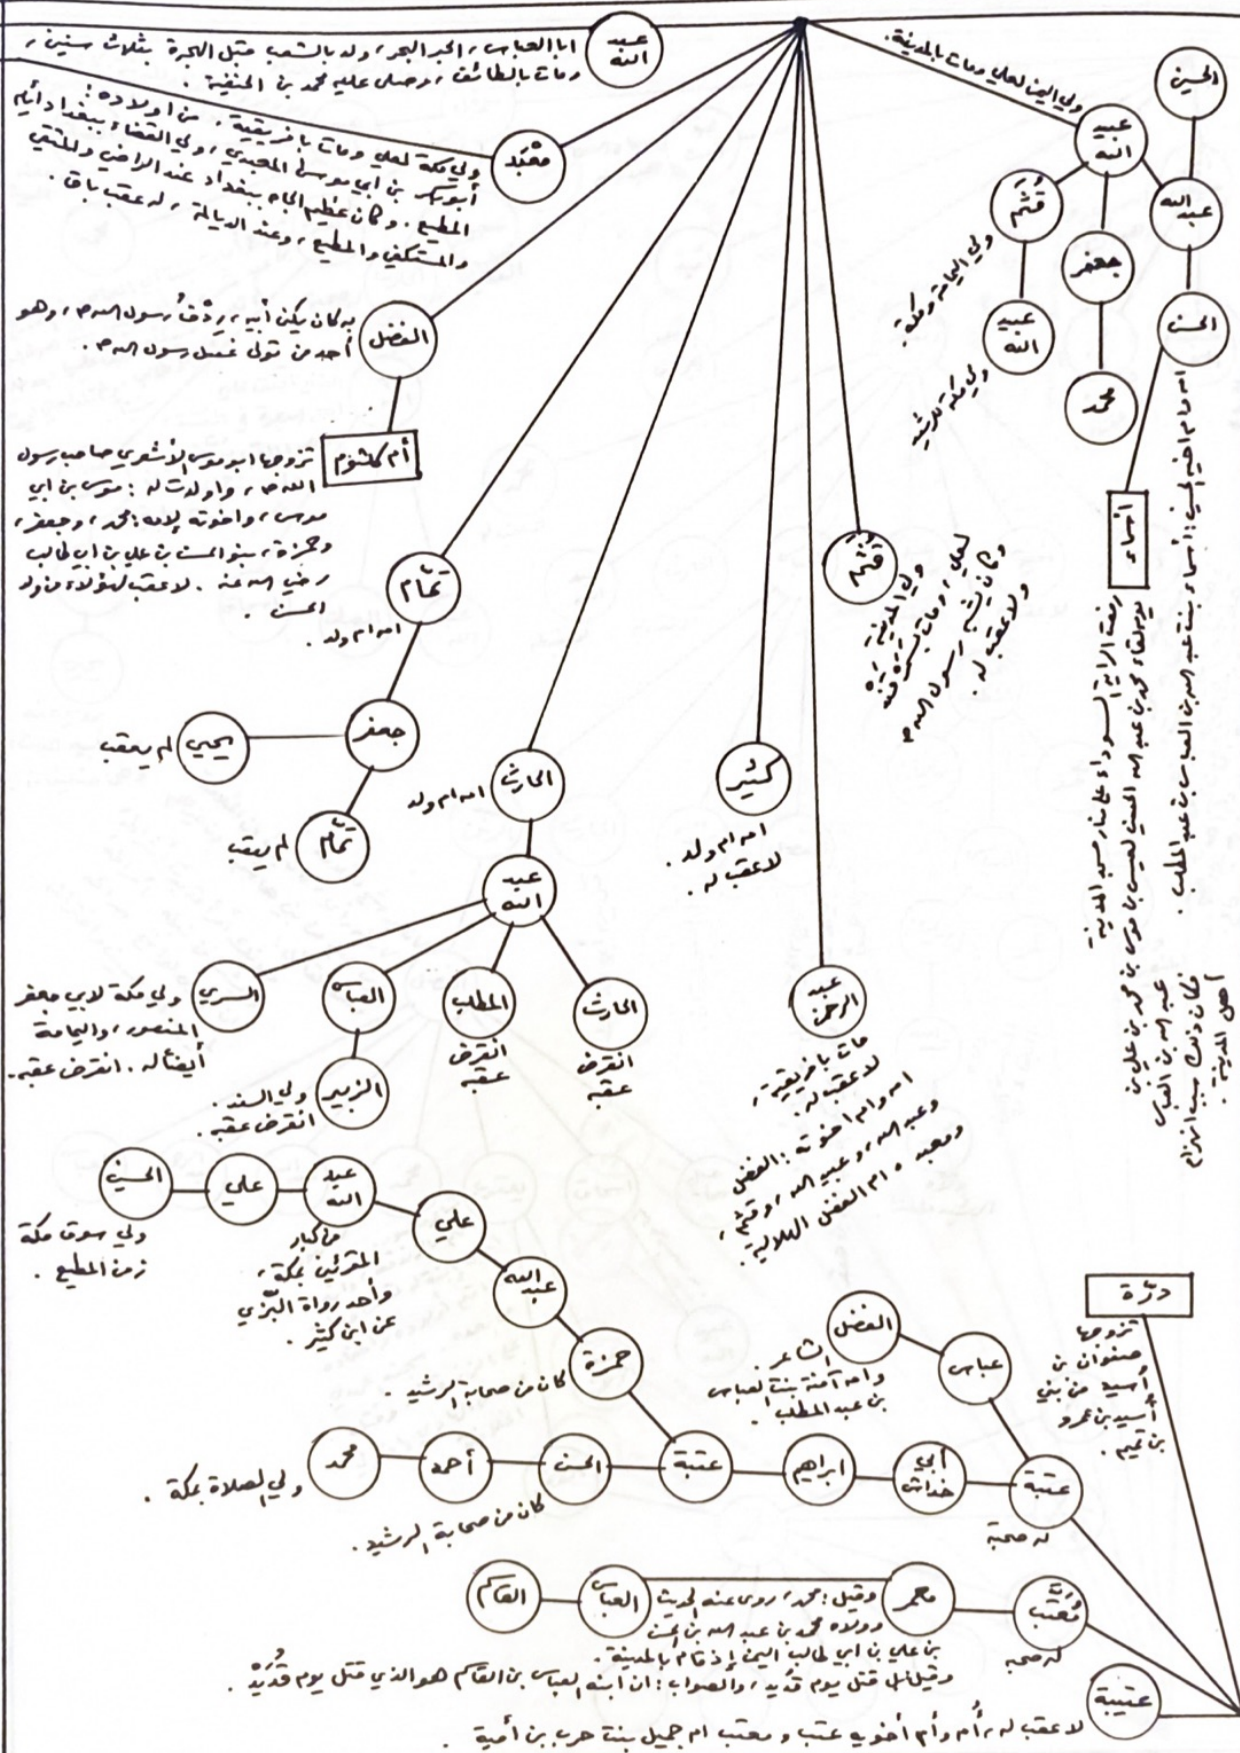 عبد
الله
ابا العباس، الحبر البحر، ولد بالشعب قبل الهجرة بثلاث سنين،
ومات بالطائف، وصلى عليه محمد بن الحنفية.
مَعْبَد
ولي مكة لعلي ومات بافريقية. من اولاده:
أبو بكر بن ابي موسى المعبدي، ولي القضاء ببغداد أيام
المطيع. وكان عظيم الجاه ببغداد عند الراضي والمتقي
والمستكفي والمطيع، وعند الديالمة، له عقب باق.
الفضل
به كان يكنى أبيه، رِدْفُ رسول الله ص، وهو
أحد من تولى غسل رسول الله ص.
أم كلثوم
تزوجها ابو موسى الأشعري صاحب رسول
الله ص، واولدت له: موسى بن ابي
موسى، واخوته لامه: محمد، وجعفر،
وحمزة، بنو الحسن بن علي بن ابي طالب
رضي الله عنه. لا عقب لهؤلاء من ولد
الحسن.
تمّام
امه ام ولد.
جعفر
يحيى
لم يعقب
تمّام
لم يعقب
الحارث
امه ام ولد
عبد
الله
السري
ولي مكة لابي جعفر
المنصور، واليمامة
أيضاً له. انقرض عقبه.
العباس
الزبير
ولي السند.
انقرض عقبه.
المطلب
انقرض
عقبه
الحارث
انقرض
عقبه
كثير
امه ام ولد.
لا عقب له.
عبد
الرحمن
مات بافريقية،
لا عقب له.
امه وام اخوته: الفضل
وعبد الله، وعبيد الله، وقثم،
ومعبد، ام الفضل الهلالية.
قُثَم
ولي المدينة
لعلي، ومات بسمرقند
وكان يشبه رسول الله ص
ولا عقب له.
ولي اليمن لعلي ومات بالمدينة.
عبيد
الله
قُثَم
ولي اليمامة ومكة.
عبيد
الله
ولي مكة للرشيد
جعفر
محمد
الحسين
عبد الله
الحسن
امه وام اخيه الحسين: أسماء بنت عبد الله بن العباس بن عبد المطلب.
اسماء
رفعت الراية السوداء على منار مسجد المدينة
يوم لقاء محمد بن عبد الله الحسني لعيسى بن موسى بن محمد بن علي بن
عبد الله بن العباس
فكان ذلك سبب انهزام
أهل المدينة.
الحسين
ولي سوق مكة
زمن المطيع.
علي
عبد
الله
من كبار
المقرئين بمكة،
وأحد رواة البَزّي
عن ابن كثير.
علي
عبد الله
حمزة
كان من صحابة الرشيد.
عتبة
الحسن
كان من صحابة الرشيد.
أحمد
محمد
ولي الصلاة بمكة.
ابراهيم
أبي
خداش
عتبة
له صحبة
عباس
الفضل
الشاعر.
وامه آمنة بنت العباس
بن عبد المطلب.
درّة
تزوجها
صفوان بن
أسيد من بني
أسيد بن عمرو
بن تميم.
مُعَتّب
له صحبة
معمر
وقيل: محمد، روى عنه الحديث
وولاه محمد بن عبد الله بن الحسن
بن علي بن ابي طالب اليمن إذ قام بالمدينة.
وقيل انه قتل يوم قديد، والصواب: ان ابنه العباس بن القاسم هو الذي قتل يوم قُدَيْد.
العباس
القاسم
عتيبة
لا عقب له، أُمه وأم أخويه عتبة ومعتب ام جميل بنت حرب بن أمية.